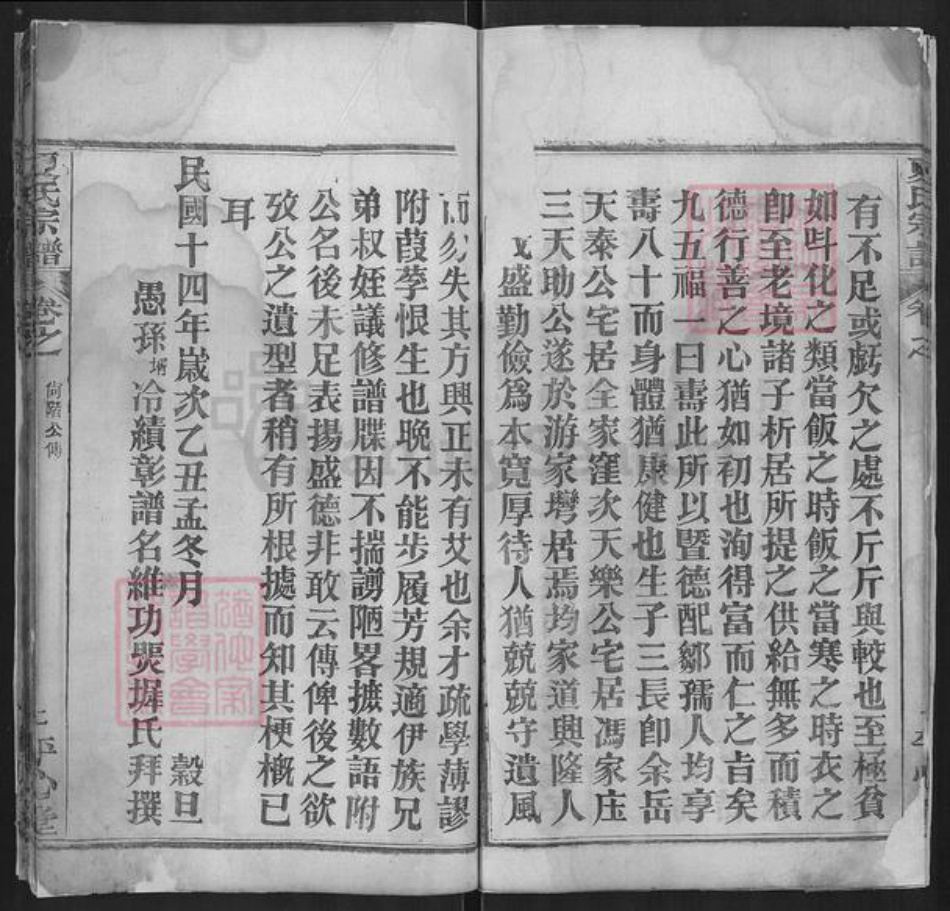 有不足或虧欠之處不斤斤與較也至極貧
如呌化之類當飯之時飯之當寒之時衣之
卽至老境諸子析居所提之供給無多而積
德行善之心猶如初也洵得富而仁之旨矣
九五福一曰壽此所以暨德配鄒孺人均享
壽八十而身體猶康健也生子三長卽余岳
天泰公宅居全家窪次天樂公宅居馮家庄
三天助公遂於游家灣居焉均家道興隆人
盛勤儉爲本寬厚待人猶兢兢守遺風
而勿失其方興正未有艾也余才疏學薄謬
附葭莩恨生也晚不能步履芳規適伊族兄
弟叔姪議修譜牒因不揣譾陋畧摭數語附
公名後未足表揚盛德非敢云傳俾後之欲
攷公之遺型者稍有所根據而知其梗槪已
耳
民國十四年嵗次乙丑孟冬月 穀旦
愚孫壻冷績彰譜名維功煚墀氏拜撰
氏宗譜 卷之 尙階公傳